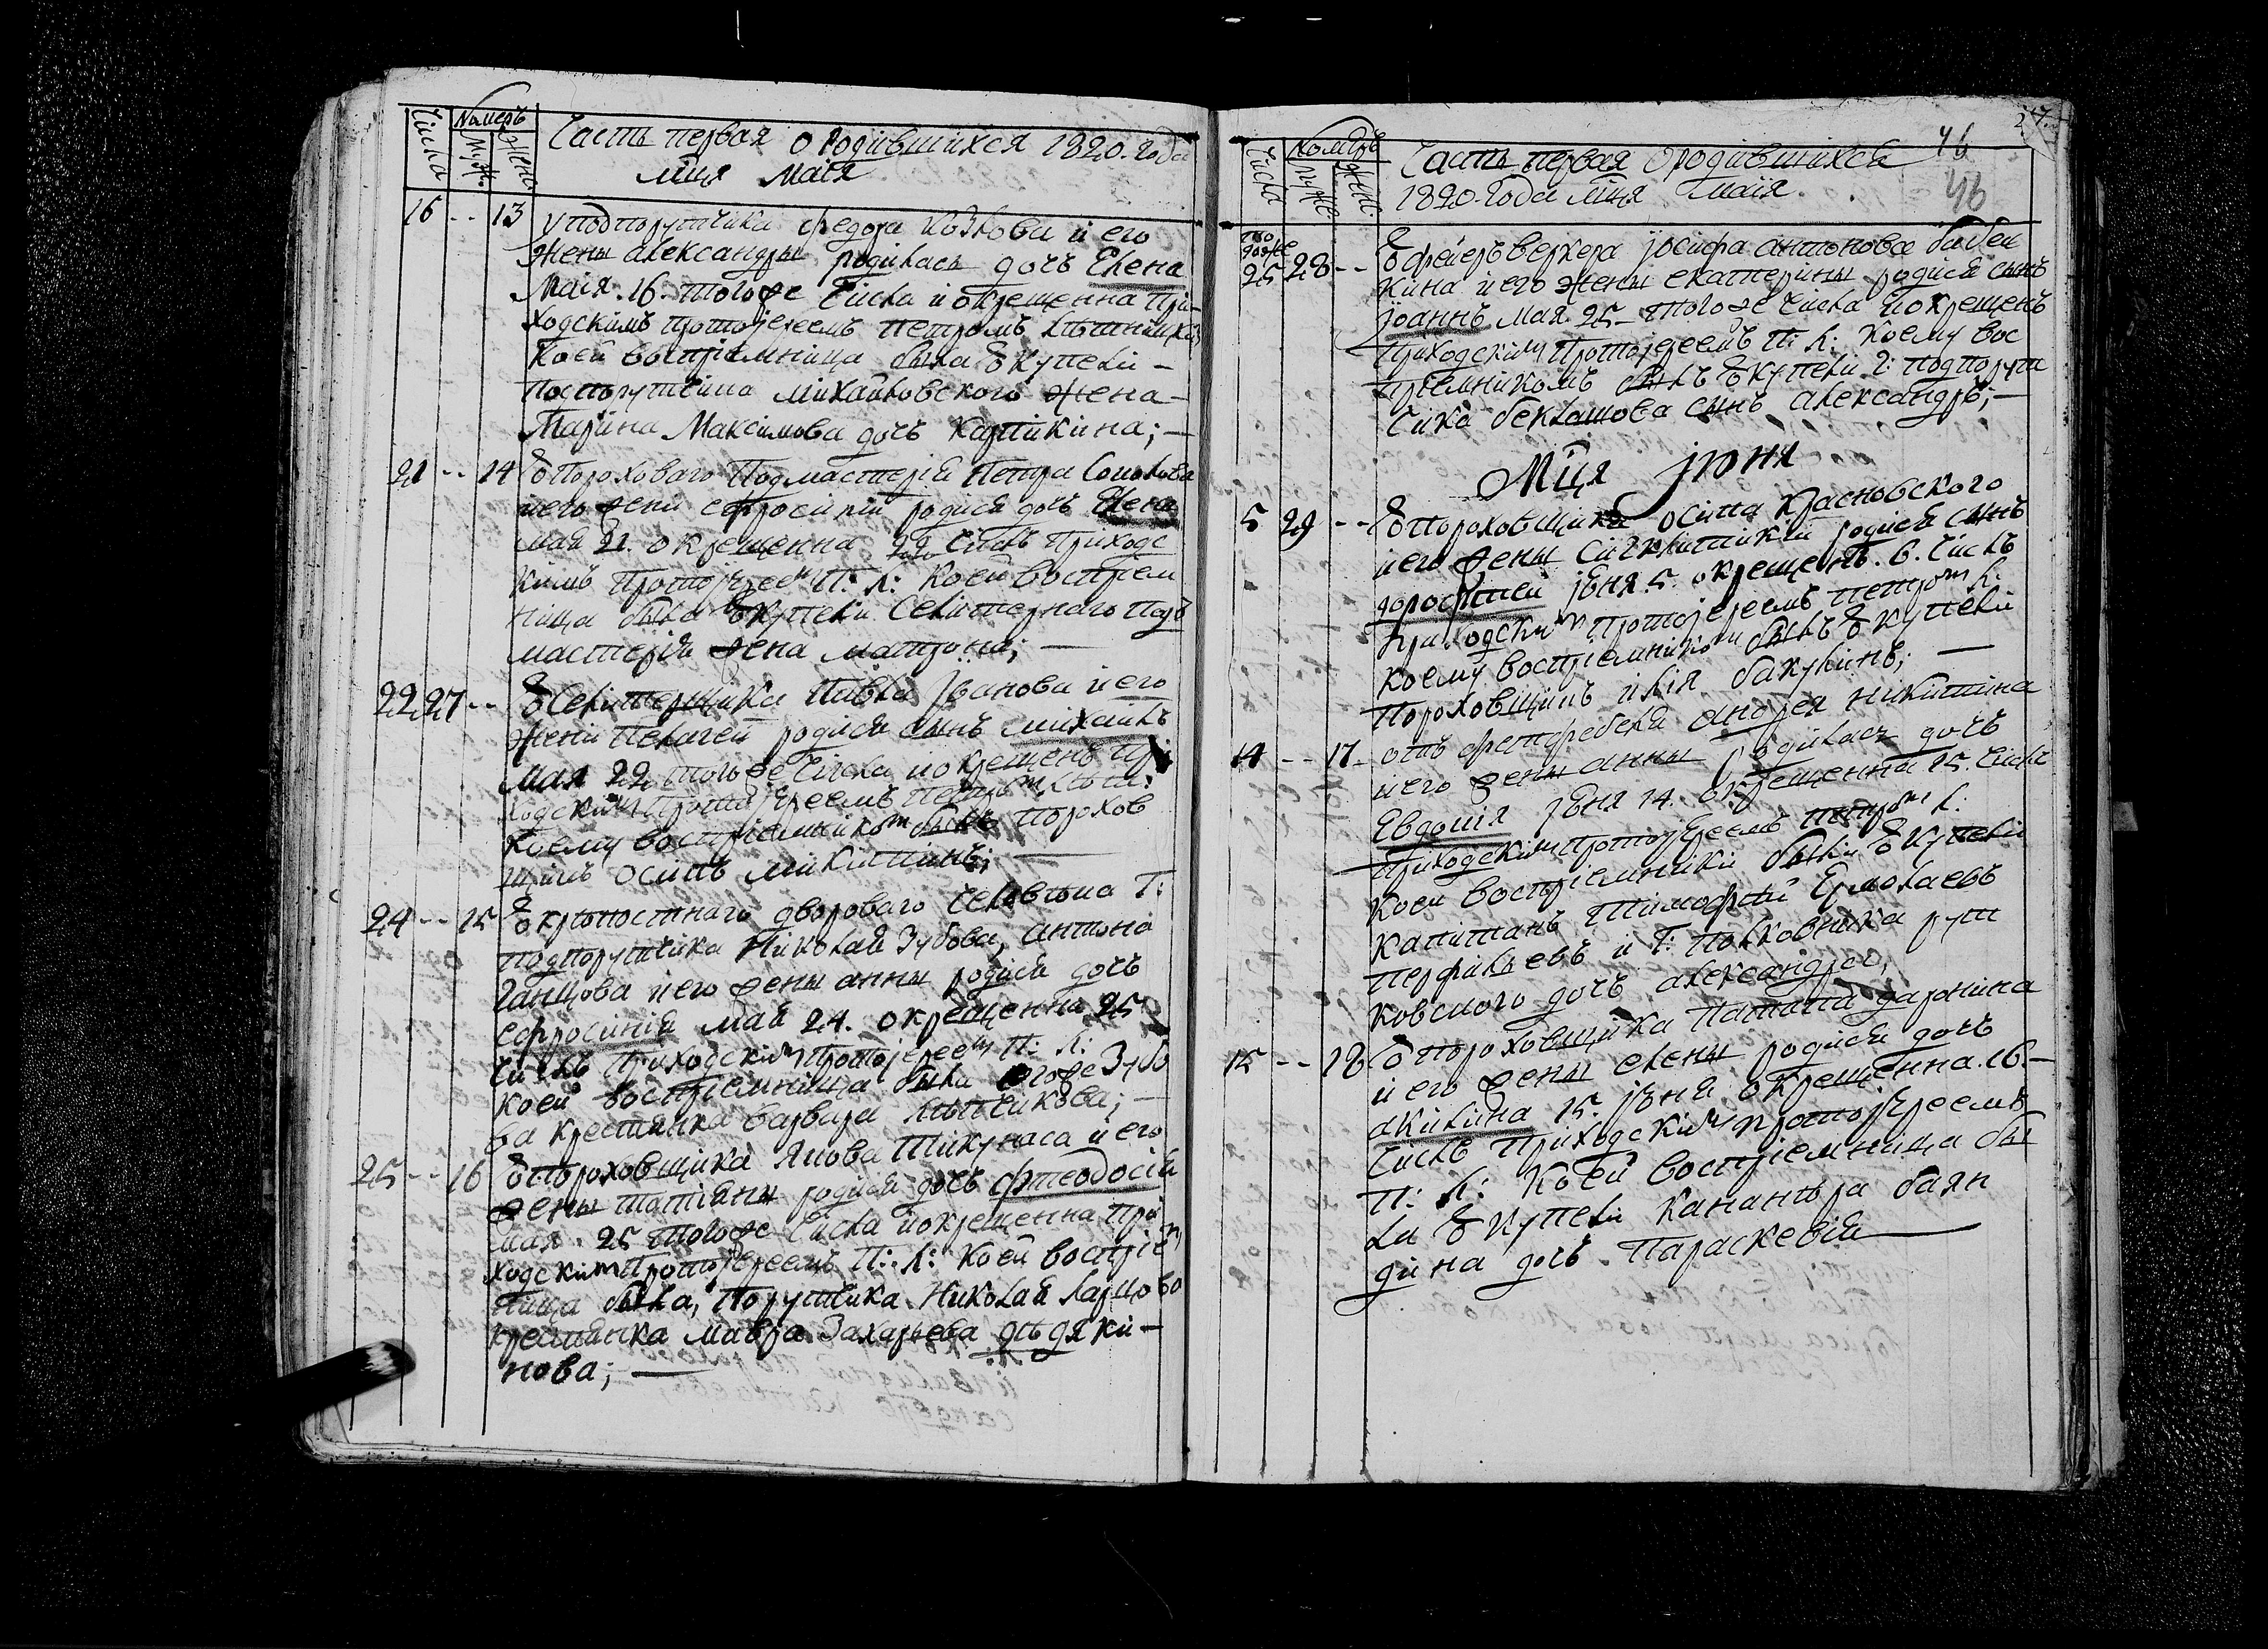 Числа
Номеръ
Муж.
Женс
Часть первая о Родившихся 1820. Года
мца Маія
16 -- 13 у подпорутчика федора Козлова и его
жены александры родилась дочь Елена
Маія. 16. тогоже Числа и окрещенна при-
ходскимъ протоіереемъ петромъ
Коей воспріемница была Ѹ Купели -
подпорутчика михайловского жена -
Марина Максимова дочь Карпикина; —
21 -- 14 Ѹ Пороховаго Подмастерія Петра Соколова
и его жены ефросиніи родися дочь Елена
мая 21. окрещенна 22 числъ приходс
кимъ протоіереем П: Л: Коей воспріем
ница была Ѹ Купели Селитернаго под
мастерія жена матрона; —
22 27 -- Ѹ Селитерщика Павла Іванова и его
жены Пелагеи родися сынъ михаилъ
мая 22 тогоже Числа и окрещенъ при
ходским протоіереемъ петром
Коему воспріемником былъ порохов
щикъ осипъ микитинъ; —
24 -- 15 Ѹ крѣпостнаго двороваго человѣка Г:
подпорутчика Николая Зубова, антона
Ганцова и его жены анны родися дочь
ефросинія мая 24. окрещенна 25
числъ приходским протоіереем П: Л:
Коей воспріемница была егоже Зубо
ва крестянка варвара; —
25 -- 16 Ѹ пороховщика Якова Тикунаса и его
жены татіаны родися дочь фтеодосія
мая. 25 тогоже Числа и окрещенна при
ходским протоіереемъ П: Л: Коей воспріем
ница была, Порутчика Николая
крестянка мавра Захарьева дѣдяки-
нова; —
Числа
Номеръ
муже
женс
Часть первая О родившихся
1820. Года мца маія.
46
46
тогоже
25 28 -- Ѹ феіерверкера іосифа антонова бабен
кина и его жены екатерины родися сынъ
іоаннъ мая 25 - тогоже Числа и окрещенъ
приходским протоіереемъ П: Л: Коему вос
пріемникомъ былъ Ѹ Купели Г: подпорут
чика беклашова сынъ александръ; —
Мца іюня
5 29 -- Ѹ пороховщика осипа Красновского
и его жены Синклитикіи родися сынъ
дорофтей іюня 5. окрещенъ. 6. числъ
приходским протоіереемъ петром Л:
Коему воспріемником былъ Ѹ Купели
пороховщикъ илія бакулинъ; —
14 -- 17 - отъ фелдфебеля андрея никитина
и его жены анны родилась дочь
Евдокія іюня 14. окрещенна 15. числа
приходским протоіереемъ петром Л:
Коей воспріемники были Ѹ Купели
Капитанъ Тимофтей Ермолаевъ
перфильевъ и Г: полковника рут
ковского дочь александра,
15 -- 18 Ѹ пороховщика Патапа даронина
и его жены елены родися дочь
акилина 15. іюня. окрещенна. 16. -
числъ приходским протоіереемъ
П: Л: Коей воспріемница бы
ла Ѹ Купели Кананѣра баян
дина дочь Параскевія —